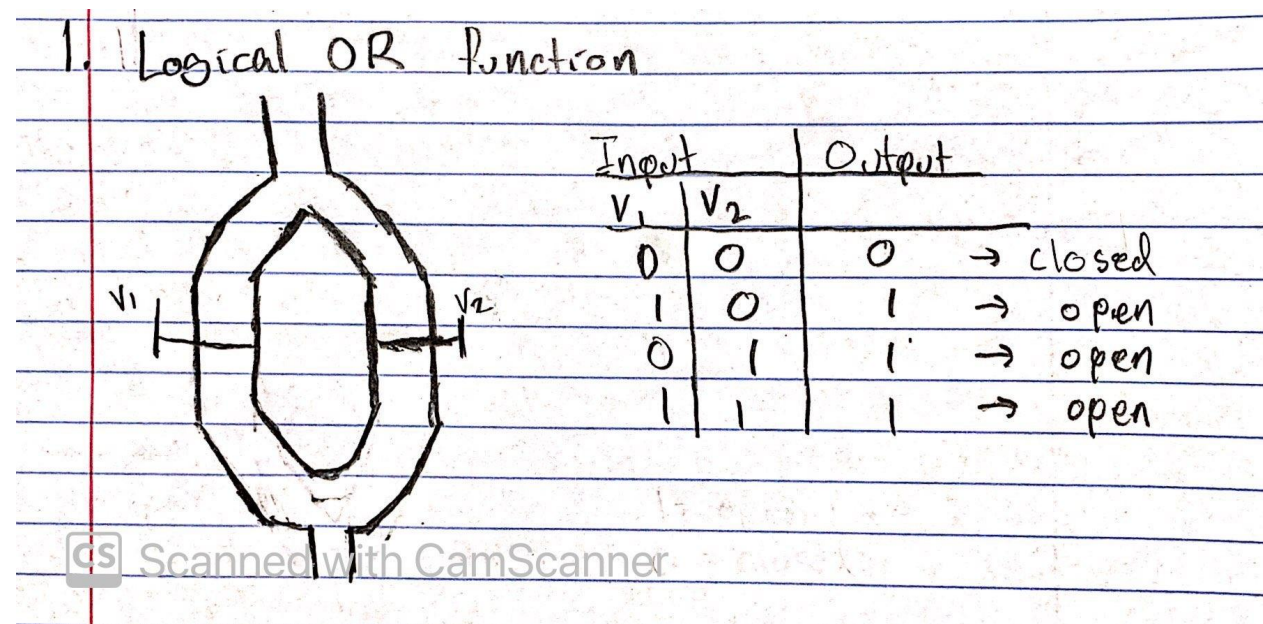 1. Logical OR function
Input Output
V1 V2
0 0 0 → closed
1 0 1 → open
0 1 1 → open
1 1 1 → open
V1 V2
CS Scanned with CamScanner